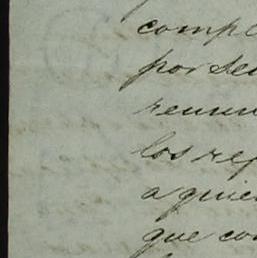 compl
por se
renun
los rep
a quie
que co